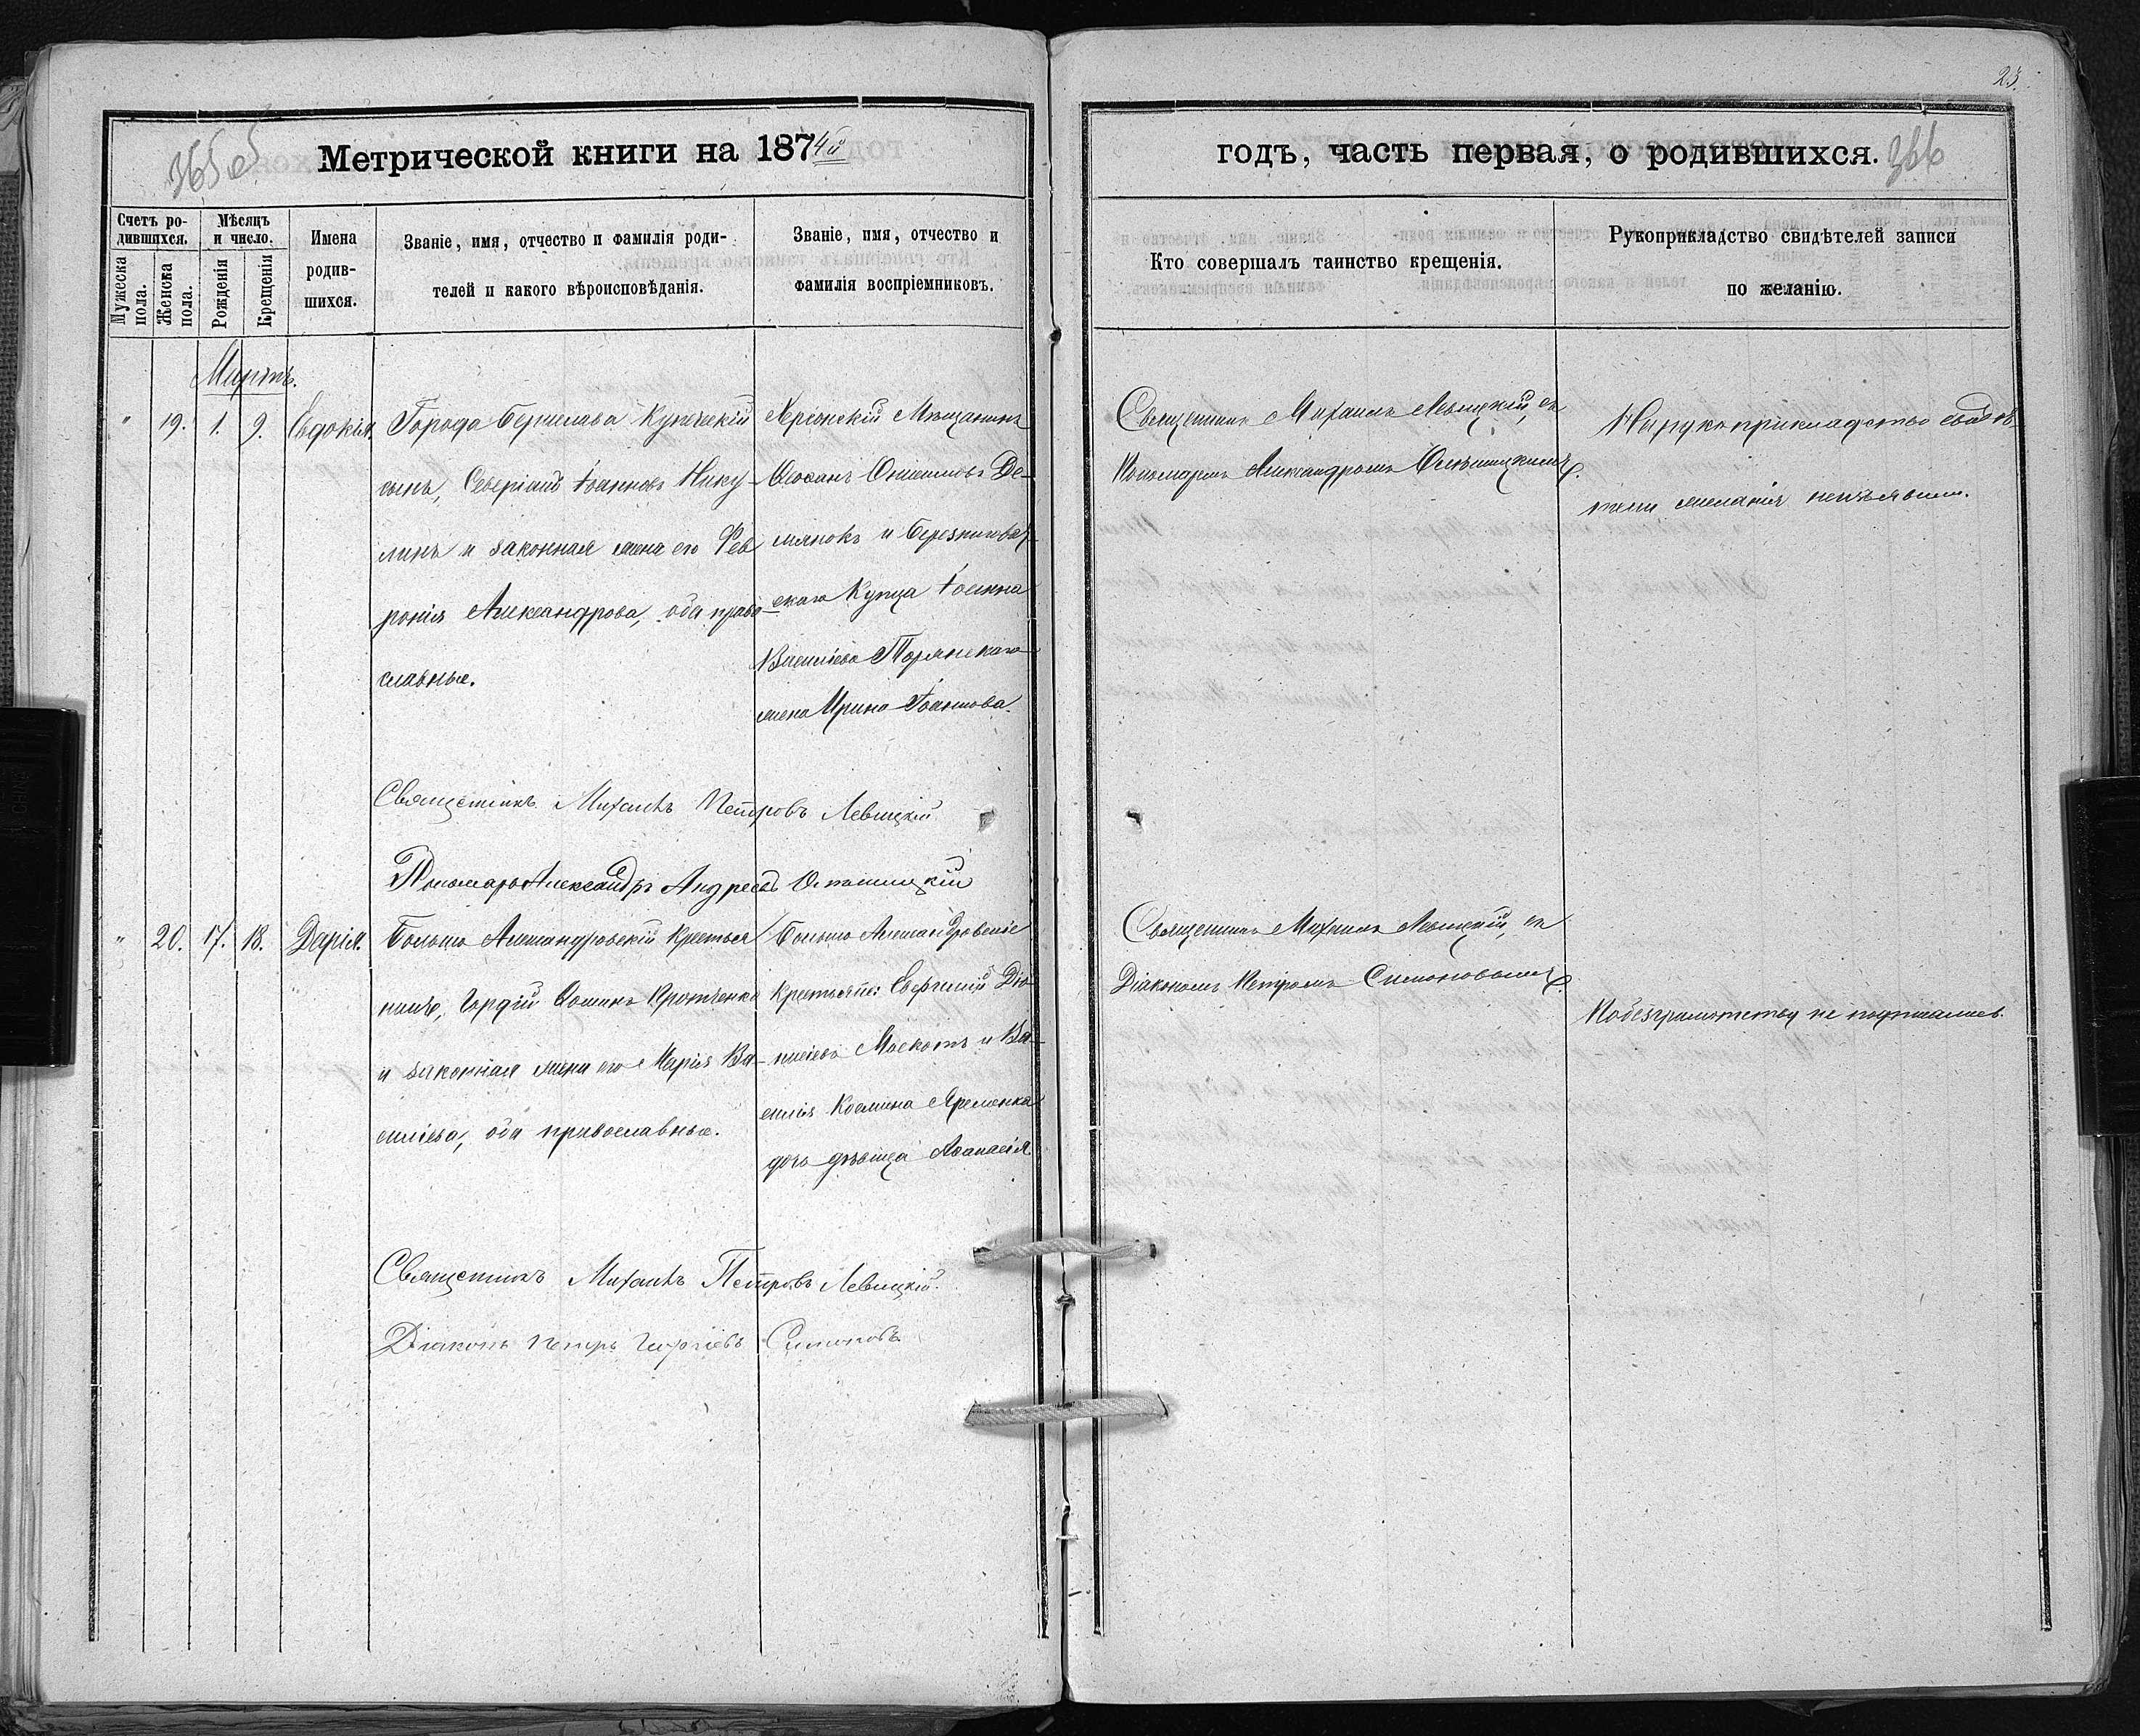 23.
365
Метрической книги на 1874й
годъ, часть первая, о родившихся.
366
Счетъ родившихся.
Мужеска пола.
Женска пола.
Мѣсяцъ и число.
Рожденія
Крещенія
Имена родившихся.
Званіе, имя, отчество и фамилія родителей и какого вѣроисповѣданія.
Званіе, имя, отчество и фамилія воспріемниковъ.
Кто совершалъ таинство крещенія.
Рукоприкладство свидѣтелей записи по желанію.
Мартъ.
"
19.
1.
9.
Евдокія.
Города Берислава Купеческій
сынъ, Северіанъ Іоанновъ Нику-
линъ и законная жена его Фев
ронія Александрова, оба право
славные.
Херсонскій Мѣщанинъ
Ѳеофанъ Онисимовъ Де-
мянокъ и Березнеговат-
скаго Купца Іоанна
Василіева
жена Ирина Іоаннова.
Священникъ Михаилъ Левицкій, съ
Пономаремъ Александромъ
На рукоприкладство свидѣ-
тели желанія неизъявили.
Священникъ Михаилъ Петровъ Левицкій
Пономарь Александръ Андреевъ
"
20.
17.
18.
Дарія.
Больше Александровскій крестья
нинъ, Гордій Ѳоминъ
и законная жена его Марія Ва-
силіева, оба православные.
Больше Александровскіе
крестьяне: Евфимій Діо
нисіевъ Москотъ и Ва-
силія Космина Яременка
дочь дѣвица Аѳанасія.
Священникъ Михаилъ Левицкій, съ
Діакономъ Петромъ Симоновымъ.
По безграмотству не подписались.
Священникъ Михаилъ Петровъ Левицкій.
Діаконъ Петръ Георгіевъ Симоновъ